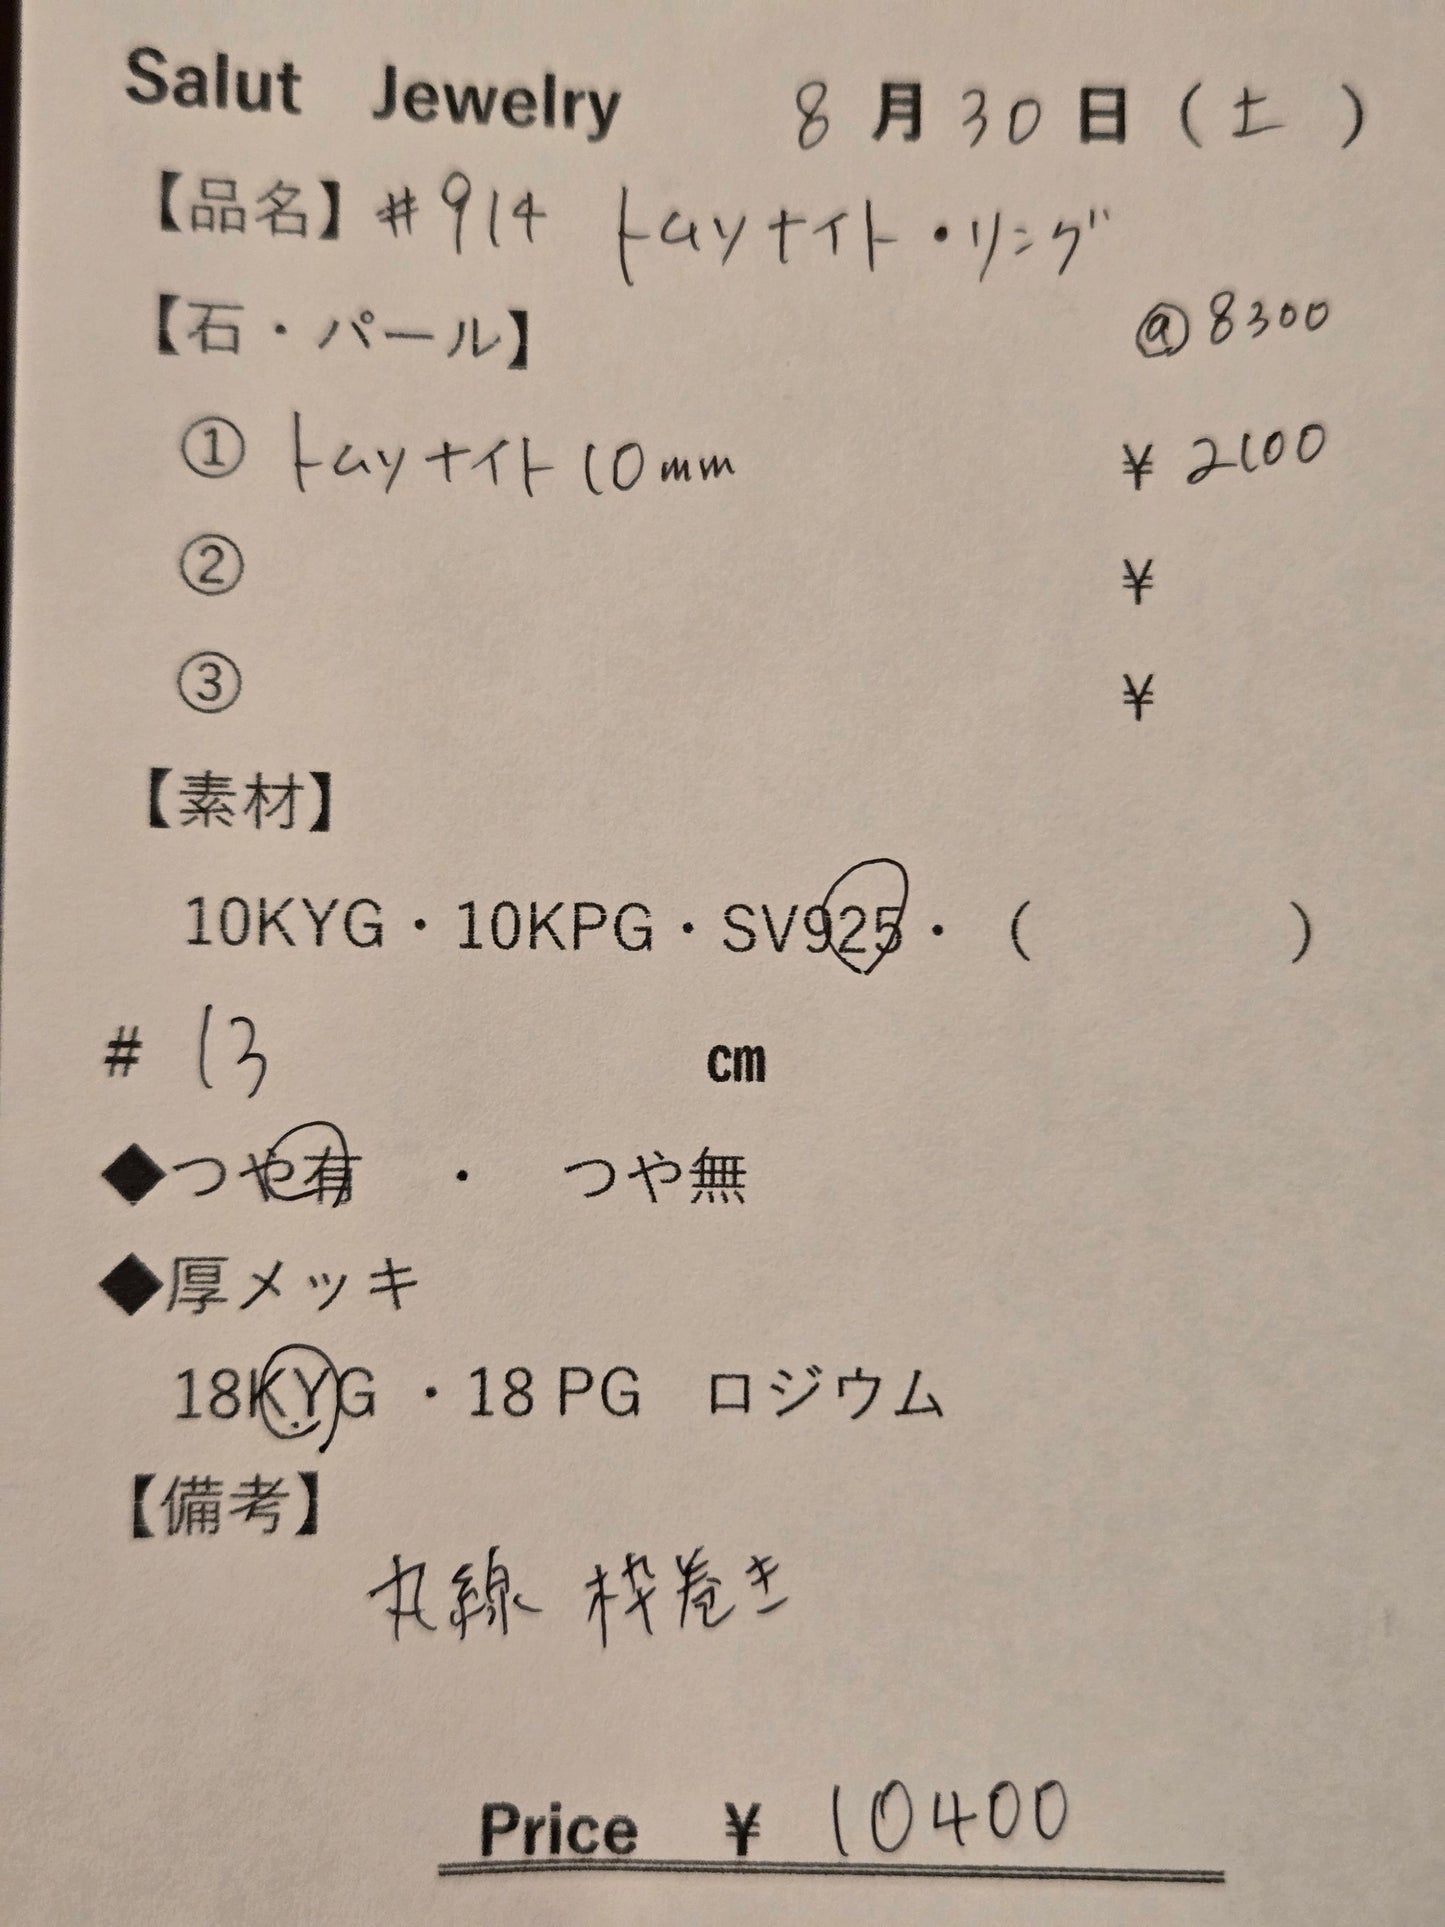 Salut Jewelry 8月30日(土)
【品名】#914 トムソナイト・リング
【石・パール】 @8300
① トムソナイト10mm ¥2100
② ¥
③ ¥
【素材】
10KYG・10KPG・SV925・( )
# 13 cm
◆つや有 ・ つや無
◆厚メッキ
18KYG ・18 PG ロジウム
【備考】
丸線 枠巻き
Price ¥ 10400